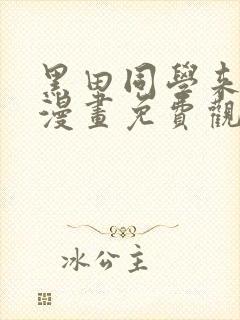 黑田同學來
漫畫免費觀
冰公主